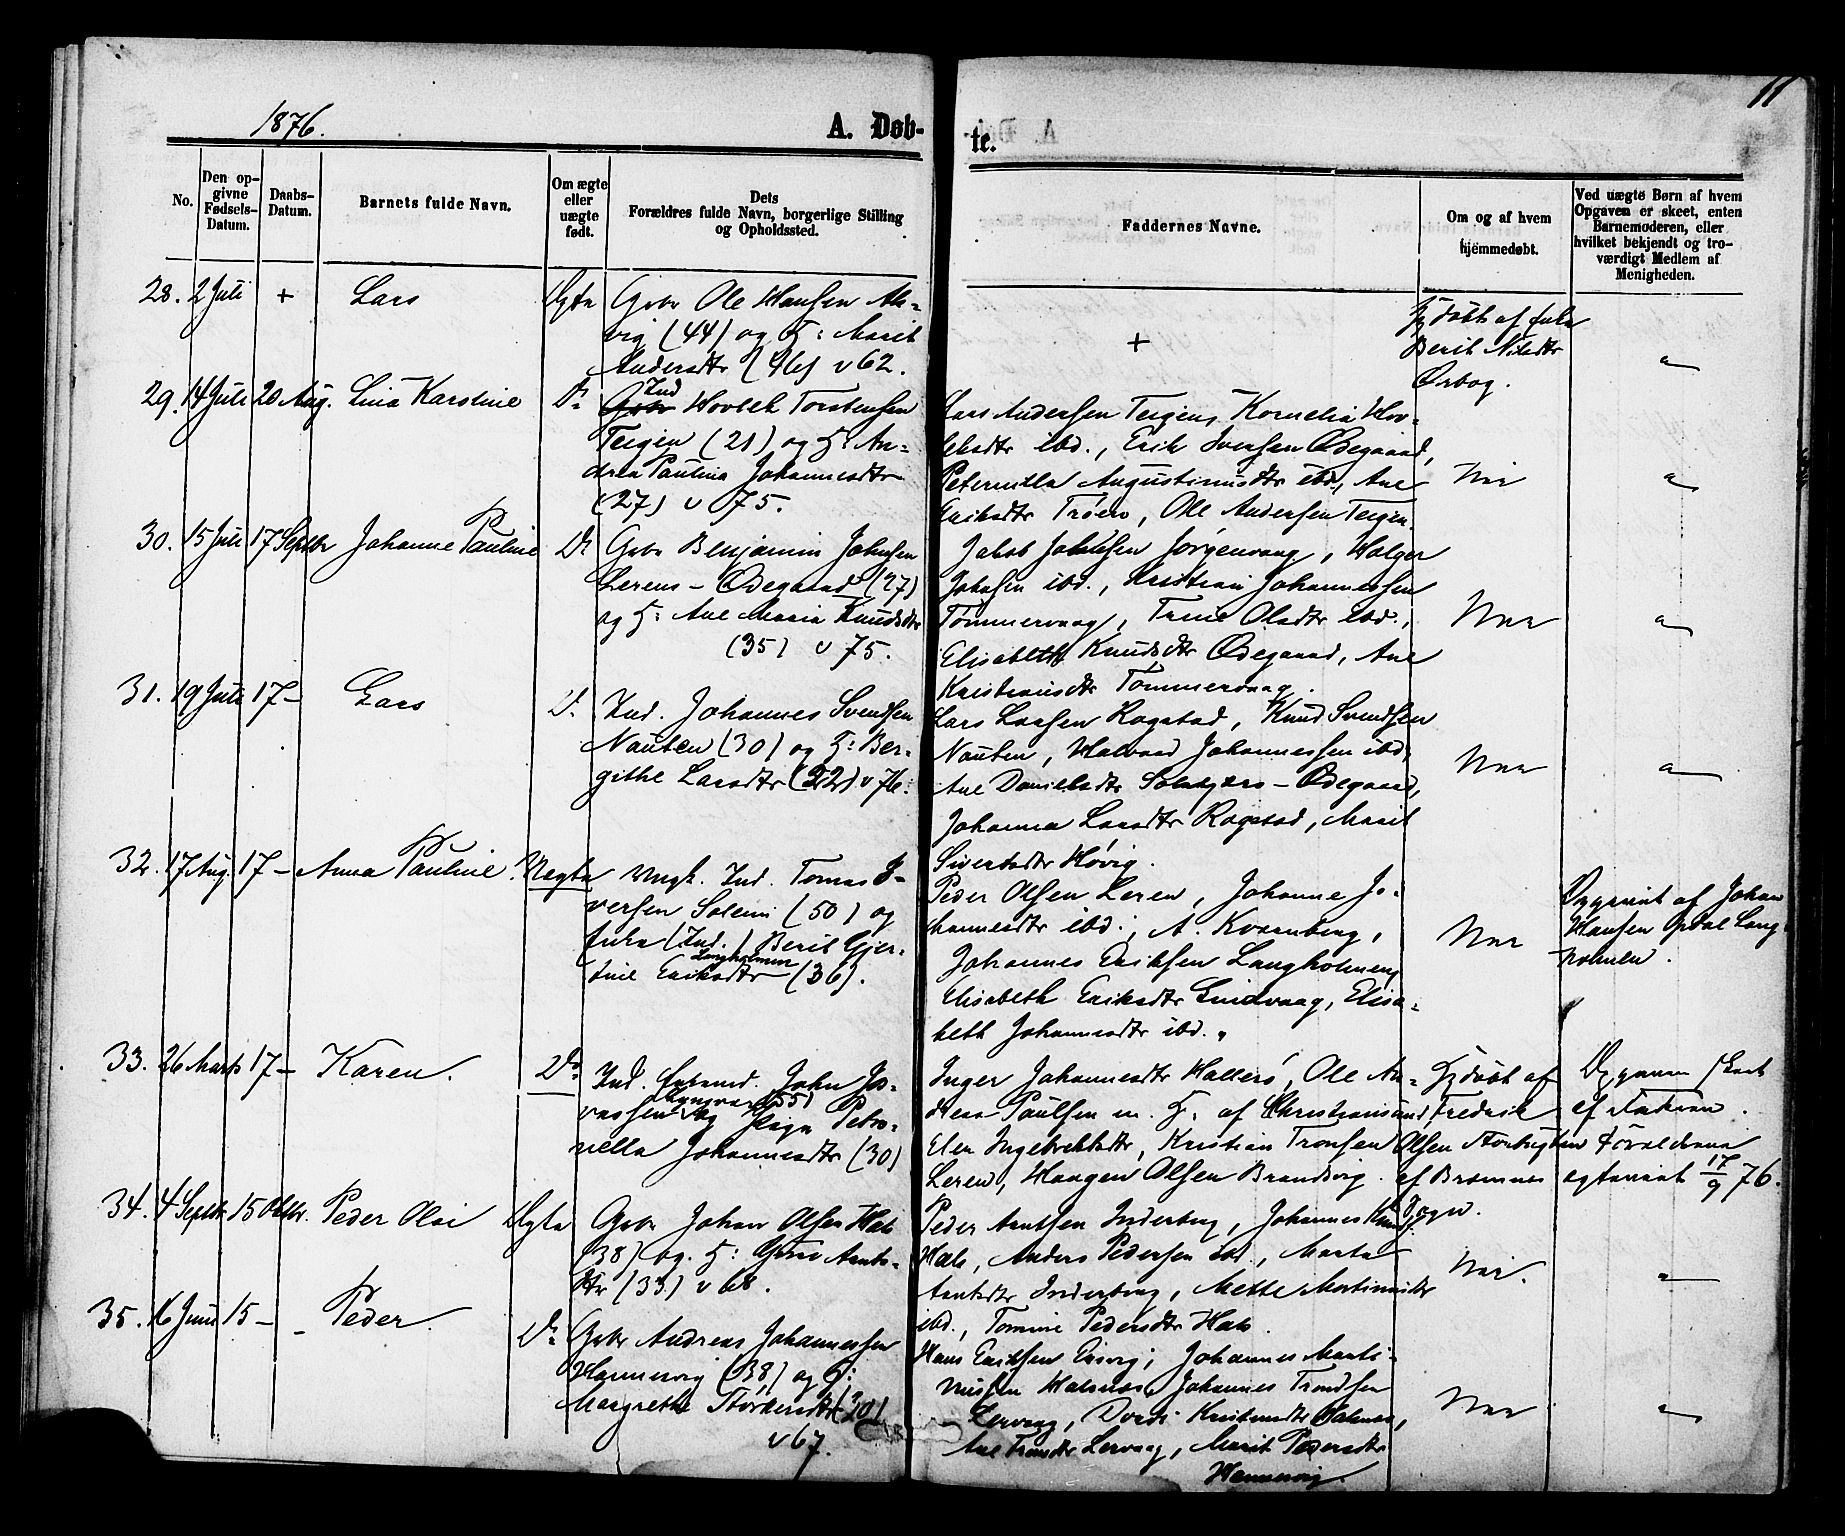 1876.
A. Døb-
te.
11
No.
Den op-
givne
Fødsels-
Datum.
Daabs-
Datum.
Barnets fulde Navn.
Om ægte
eller
uægte
født.
Dets
Forældres fulde Navn, borgerlige Stilling
og Opholdssted.
Faddernes Navne.
Om og af hvem
hjemmedøbt.
Ved uægte Børn af hvem
Opgaven er skeet, enten
Barnemoderen, eller
hvilket bekjendt og tro-
værdigt Medlem af
Menigheden.
28. 2 Juli + Lars Ægte Gbr Ole Hansen
vig (44) og H: Marit
Andersdtr (46) v 62.
+
Hjdøbt af
Berit Nilsdtr
Ørbog.
29. 14 Juli 20 Aug. Lina Karoline Do Ind
Gbr Hovleth Torstensen
Teigen (21) og H: An-
drea Paulina Johannesdtr
(27) v 75.
Lars Andersen Teigen, Kornelia Hov-
lethsdtr ibd., Erik Iversen Ødegaard,
Peternilla Augustinusdtr ibd., Ane
Eriksdtr Trøen, Ole Andersen Teigen.
Nei
30. 15 Juli 17 Septbr Johanne Pauline Do Gbr Benjamin Johnsen
Lerens-Ødegaard (27)
og H: Ane Maria Knudsdtr
(35) v 75.
Jakob Jakobsen Jørgenvaag, Holger
Jakobsen ibd., Kristian Johannessen
Tømmervaag, Trine Olsdtr ibd.,
Elisabeth Knudsdtr Ødegaard, Ane
Kristiansdtr Tømmervaag.
Nei
31. 19 Juli 17 - Lars Do Ind. Johannes Svendsen
Nausten (30) og H: Ber-
githe Larsdtr (22) v 76.
Lars Larsen Rogstad, Knud Svendsen
Nausten, Halvard Johannessen ibd.
Ane Danielsdtr Solskjærs-Ødegaard,
Johanna Larsdtr Rogstad, Marit
Sivertsdtr Høvig.
Nei
32. 17 Aug. 17 - Anna Pauline. Uægte Ungk. Ind. Tomas I-
versen Solem (50) og
(Ind.) Berit Gjer-
Langholmen
tine Eriksdtr (36).
Peder Olsen Leren, Johanne Jo-
hannesdtr ibd., A. Rosenberg,
Johannes Eriksen Langholmen,
Elisabeth Eriksdtr Grindvaag, Elisa-
beth Johannesdtr ibd.
Nei
Opgivet af Johan
Hansen Opdal Lang-
holmen.
33. 26 Marts 17 - Karen. Do Ind. John Jo-
(55)
og Pige Petro-
nella Johannesdtr (30)
Inger Johannesdtr Hallerø, Ole An-
dreas Paulsen m. H: af Christiansund
Elen Ingebrektsdtr, Kristian Tronsen
Leren, Haagen Olsen Brandsvig.
Hjdøbt af
Fredrik
Olsen
af Bremnes
Sogn.
Opgaven skeet
af
Forældrene
ægteviet 17/9 76.
34. 4 Septbr. 15 Oktbr. Peder Olai Ægte Gbr Johan Olsen Hals
(38) og H: Guru Arnts-
dtr (33) v 68.
Peder Arntsen Inderberg, Johannes Knuds.
Hals, Anders Pedersen ibd., Marta
Arntsdtr Inderberg, Mette Martinusdtr
ibd., Tomine Pedersdtr Hals.
Nei.
35. 16 Juni 15 - Peder. Do Gbr Andreas Johannessen
Hennervig (38) og H:
Margrethe Størkersdtr (30)
v 67.
Hans Eriksen Eisvig, Johannes Marti-
nussen Halsnes, Johannes Trondsen
Lervaag, Dordi Kristensdtr Halsnes,
Ane Tronsdtr Lervaag, Marit Pedersdtr
Hennervig.
Nei